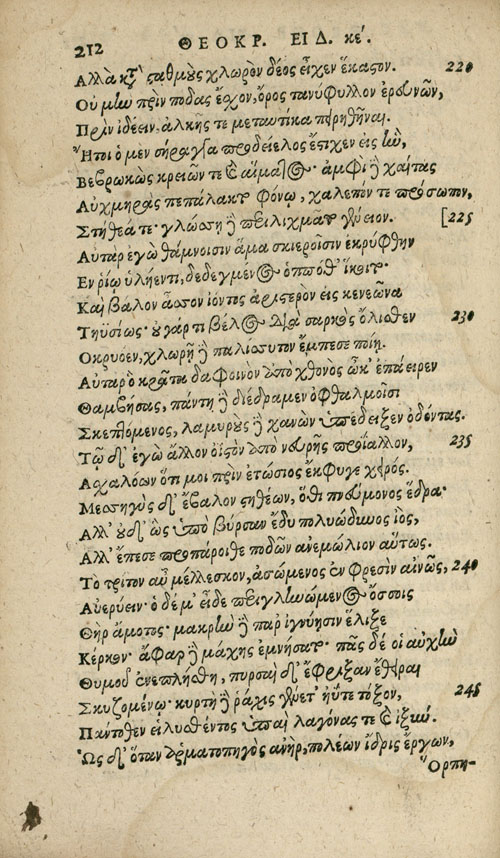 212 ΘΕΟΚΡ. ΕΙΔ. κέ.
Αλλὰ κτ̀ ςαθμοὺς χλωρὸν δέος εἶχεν ἕκαςον. 220
Οὐ μὴν πρὶν πόδας ἔσχον, ὄρος τανύφυλλον ἐρευνῶν,
Πρὶν ἰδέειν. ἀλκῆς τε μεταυτίκα πειρηθῆναι.
Ἤτοι ὁ μὲν σήραγγα προδείελος ἔςιχεν εἰς ἣν,
Βεβρωκὼς κρειῶν τε καὶ αἵματος· ἀμφὶ δὲ χαίτας
Αὐχμηρὰς πεπάλακτο φόνῳ, χαλεπόν τε πρόσωπον,
Στήθεά τε· γλώσσῃ δὲ περιλιχμᾶτο γένειον. [225
Αὐτὰρ ἐγὼ θάμνοισιν ἅμα σκιεροῖσιν ἐκρύφθην
Εν ῥίῳ ὑλήεντι, δεδεγμένος ὁππόθ' ἵκοιτο·
Καὶ βάλον ἆσσον ἰόντος ἀριςερὸν εἰς κενεῶνα
Τηϋσίως· οὐ γάρ τι βέλος διὰ σαρκὸς ὄλισθεν 230
Οκρυόεν, χλωρῇ δὲ παλίσσυτον ἔμπεσε ποίῃ.
Αὐτὰρ ὁ κρᾶτα δαφοινὸν ἀπὸ χθονὸς ὦκ' ἐπάειρεν
Θαμβήσας, πάντη δὲ διέδραμεν ὀφθαλμοῖσι
Σκεπτόμενος, λαμυροὺς δὲ χανὼν ὑπέδειξεν ὀδόντας.
Τῷ δ' ἐγὼ ἄλλον ὀϊςὸν ἀπὸ νευρῆς προΐαλλον, 235
Ασχαλόων ὅτι μοι πρὶν ἐτώσιος ἔκφυγε χειρός.
Μεσσηγὺς δ' ἔβαλον ςηθέων, ὅθι πνεύμονος ἕδρα·
Αλλ' οὐδ' ὣς ὑπὸ βύρσαν ἔδυ πολυώδυνος ἰὸς,
Αλλ' ἔπεσε προπάροιθε ποδῶν ἀνεμώλιον αὔτως.
Τὸ τρίτον αὖ μέλλεσκον, ἀσώμενος ἐν φρεσὶν αἰνῶς, 240
Αὐερύειν· ὁ δέ μ' εἶδε περιγληνώμενος ὄσσοις
Θὴρ ἄμοτος· μακρὴν δὲ παρ' ἰγνύησιν ἕλιξε
Κέρκον· ἄφαρ δὲ μάχης ἐμνήσατο· πᾶς δέ οἱ αὐχὴν
Θυμοῦ ἐνεπλήσθη, πυρσαὶ δ' ἔφριξαν ἔθειραι
Σκυζομένῳ· κυρτὴ δὲ ῥάχις γένετ' ἠΰτε τόξον, 245
Πάντοθεν εἰλυσθέντος ὑπαὶ λαγόνας τε καὶ ἰξύν.
Ὡς δ' ὅταν ἁρματοπηγὸς ἀνὴρ, πολέων ἴδρις ἔργων,
Ὅρπη-